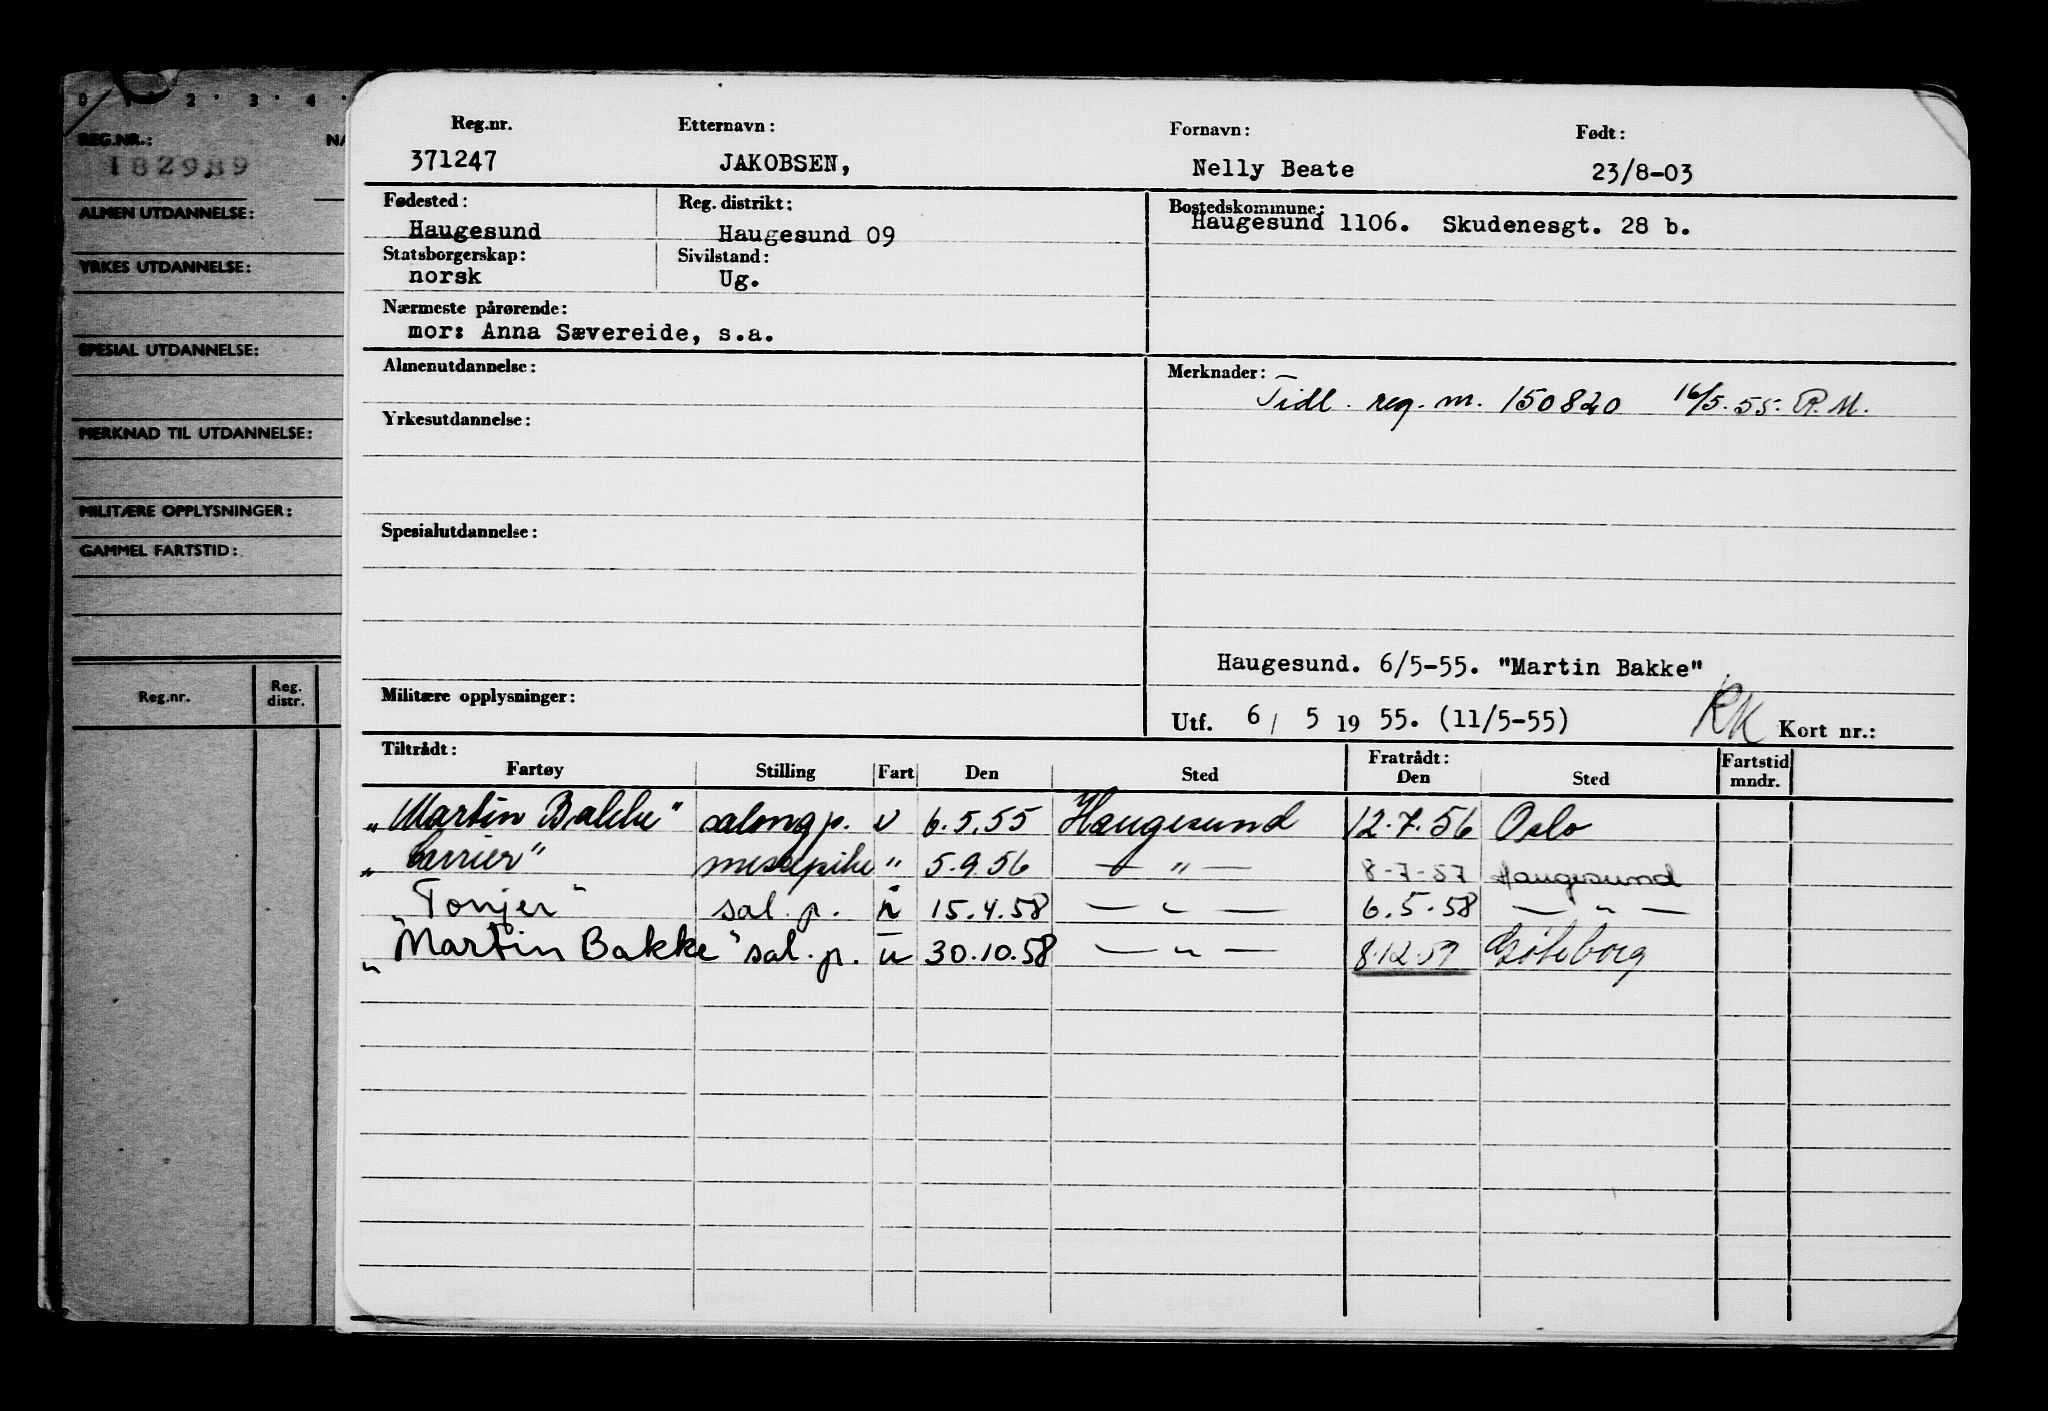 0 1 2 3 4
REG.NR.: NA
182989
ALMEN UTDANNELSE:
YRKES UTDANNELSE:
SPESIAL UTDANNELSE:
MERKNAD TIL UTDANNELSE:
MILITÆRE OPPLYSNINGER:
GAMMEL FARTSTID:
Reg.nr. Reg. distr.
Reg.nr. Etternavn: Fornavn: Født:
371247 JAKOBSEN, Nelly Beate 23/8-03
Fødested: Reg. distrikt: Bostedskommune:
Haugesund Haugesund 09 Haugesund 1106. Skudenesgt. 28 b.
Statsborgerskap: Sivilstand:
norsk Ug.
Nærmeste pårørende:
mor: Anna Sævereide, s.a.
Almenutdannelse: Merknader:
Tidl. reg. nr. 150820 16/5-55. R.M.
Yrkesutdannelse:
Spesialutdannelse:
Haugesund. 6/5-55. "Martin Bakke"
Militære opplysninger:
Utf. 6 / 5 19 55. (11/5-55) RK Kort nr.:
Tiltrådt: Fratrådt: Fartstid
Fartøy Stilling Fart Den Sted Den Sted mndr.
"Martin Bakke" salongp. u 6.5.55 Haugesund 12.7.56 Oslo
"Carrier" messepike " 5.9.56 — " — 8-7-57 Haugesund
"Tonjer" sal. p. i 15.4.58 — " — 6.5.58 — " —
"Martin Bakke" sal. p. u 30.10.58 — " — 8.12.59 Göteborg